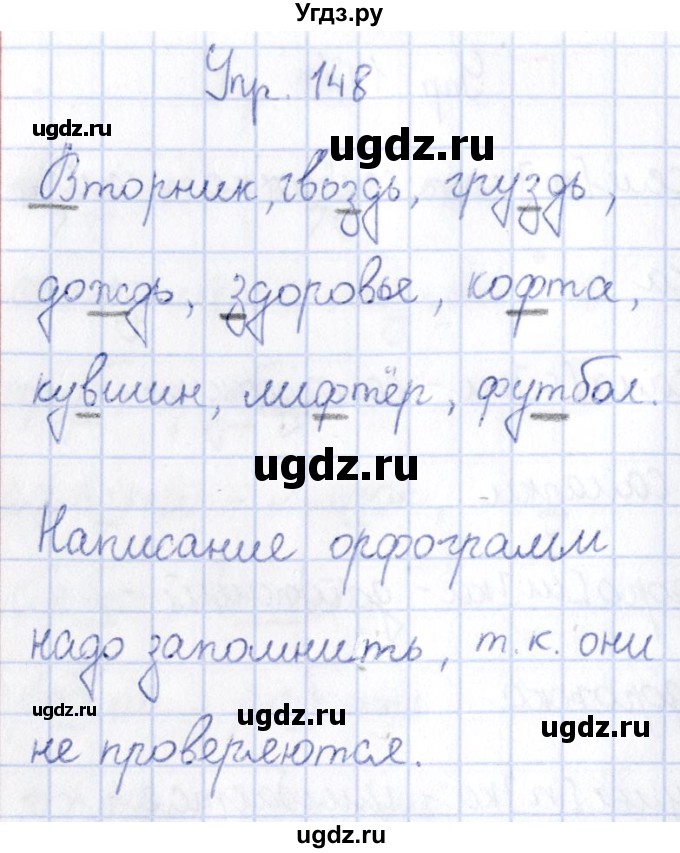 Угдз.ру
Упр. 148
ugdz.ru
ugdz.ru
Вторник, гвоздь, груздь,
дождь, здоровье, кофта,
кувшин, лифтёр, футбол.
ugdz.ru
Написание орфограмм
надо запомнить, т.к. они
ugdz.ru
ugdz.ru
ugdz.ru
не проверяются.
ugdz.ru